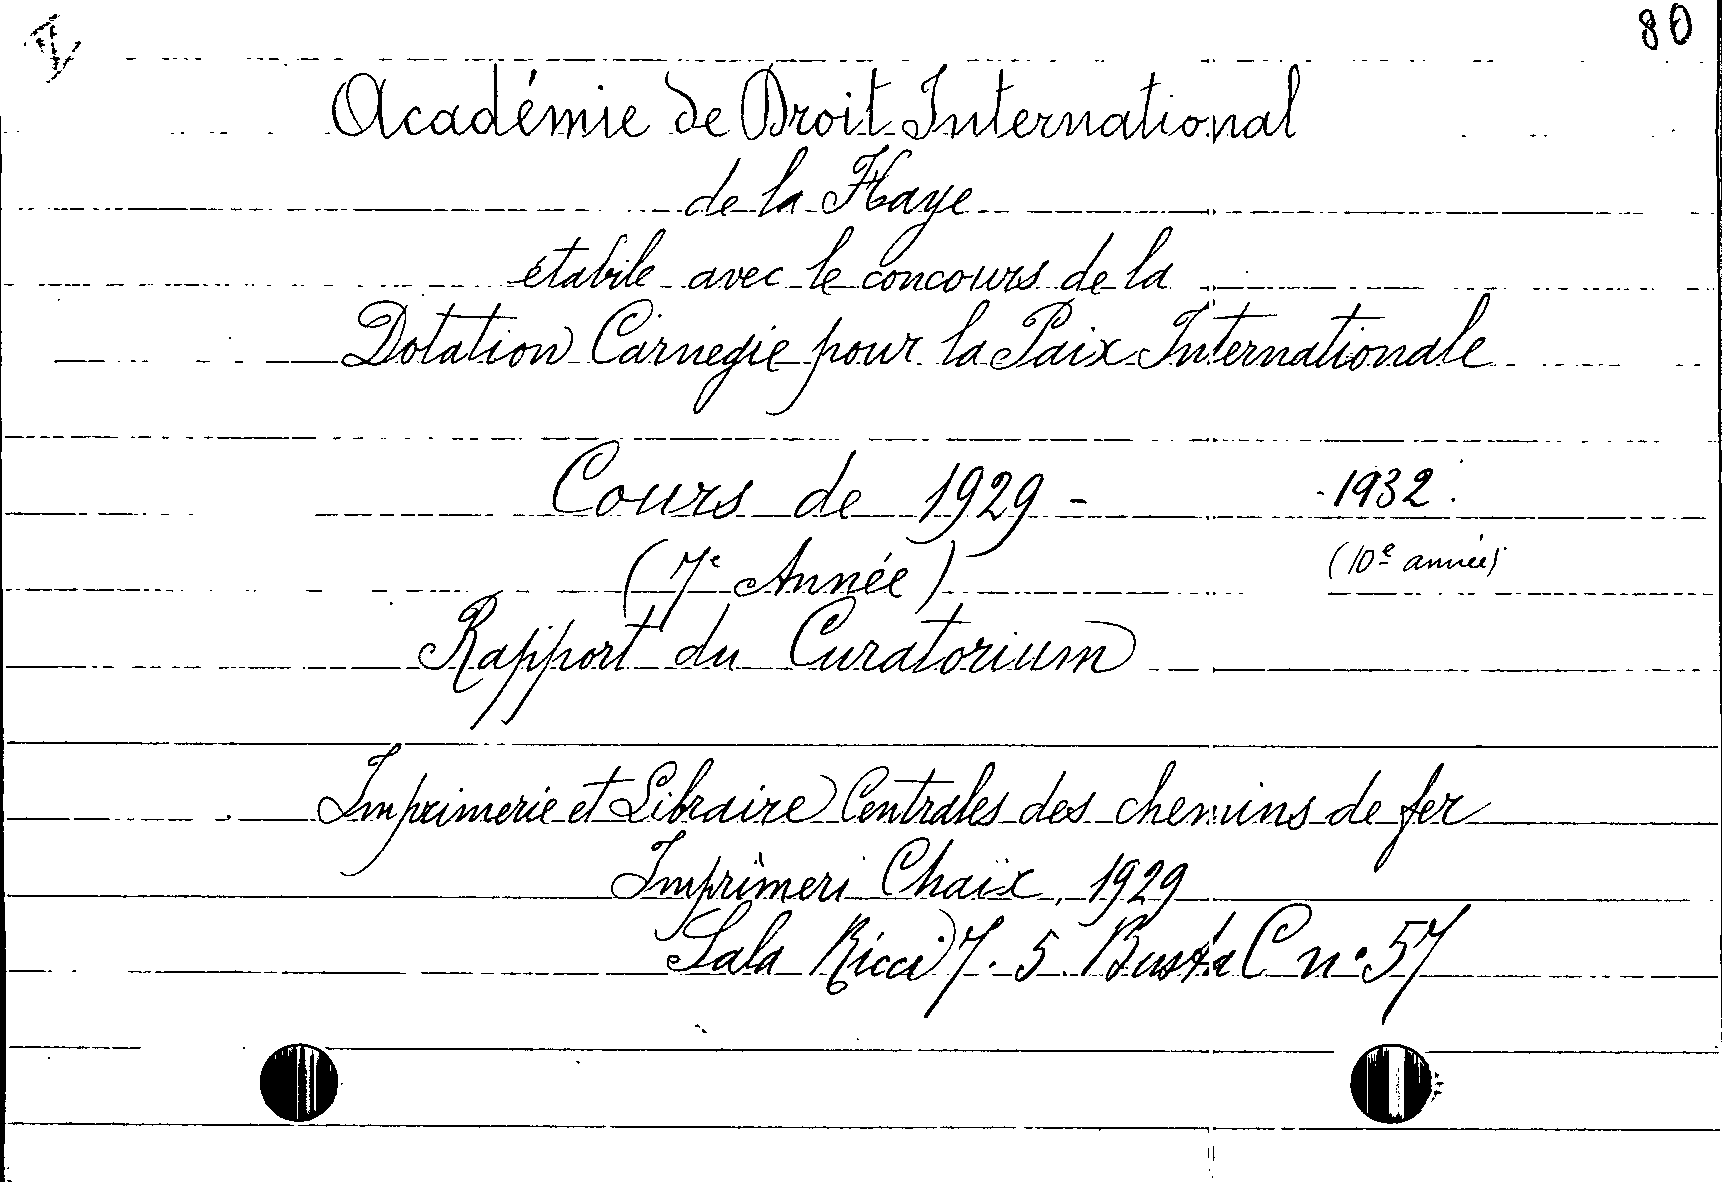 80
Académie de Droit International
de la Haye
étabile avec le concours de la
Dotation Carnegie pour la Paix Internationale
Cours de 1929 - - 1932.
(7e Année) (10e année)
Rapport du Curatorium
Imprimerie et Libraire Centrales des chemins de fer
Imprimeri Chaix, 1929
Sala Ricci 7. 5. Busta C n° 57